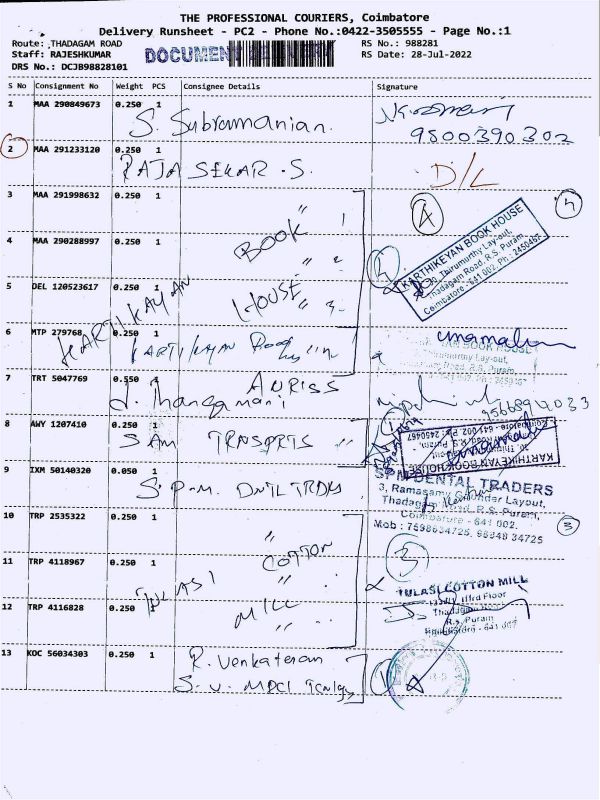 THE PROFESSIONAL COURIERS, Coimbatore
Delivery Runsheet - PC2 - Phone No.:0422-3505555 - Page No.:1
Route: THADAGAM ROAD
Staff: RAJESHKUMAR
DRS No.: DCJB98828101
DOCUMENT
RS No.: 988281
RS Date: 28-Jul-2022
S No Consignment No Weight PCS Consignee Details Signature
1 MAA 290849673 0.250 1 S. Subramanian.
9500390302
2 MAA 291233120 0.250 1 RAJA SEKAR .S. D/L
3 MAA 291998632 0.250 1 "
4 MAA 290288997 0.250 1 BOOK
KARTHIKEYAN BOOK HOUSE
Thirumurthy Lay-out,
Thadagam Road, R.S. Puram,
Coimbatore - 641 002. Ph: 2450467
5 DEL 120523617 0.250 1 HOUSE
KARTIKAYAN
6 MTP 279768 0.250 1 KARTIKAYAN Book
umamahes
BOOK HOUSE
Thirumurthy Lay-out,
7 TRT 5047769 0.550 1
8 AWY 1207410 0.250 1 SAM TRNSPRTS
KARTHIKEYAN BOOK HOUSE
9 IXM 50140320 0.050 1 S.P.M. DNTL TRDRS
DENTAL TRADERS
3, Ramasamy Gounder Layout,
Thadagam Road, R.S. Puram,
Coimbatore - 641 002.
Mob : 7598634725, 98948 34725
10 TRP 2535322 0.250 1 "
COTTON
11 TRP 4118967 0.250 1 "
TULASI
12 TRP 4116828 0.250 1 MILL
TULASI COTTON MILL
IIIrd Floor
Thadagam Road
R.S. Puram
Coimbatore - 641 002
13 KOC 56034303 0.250 1 R. Venkatesan
S. V.